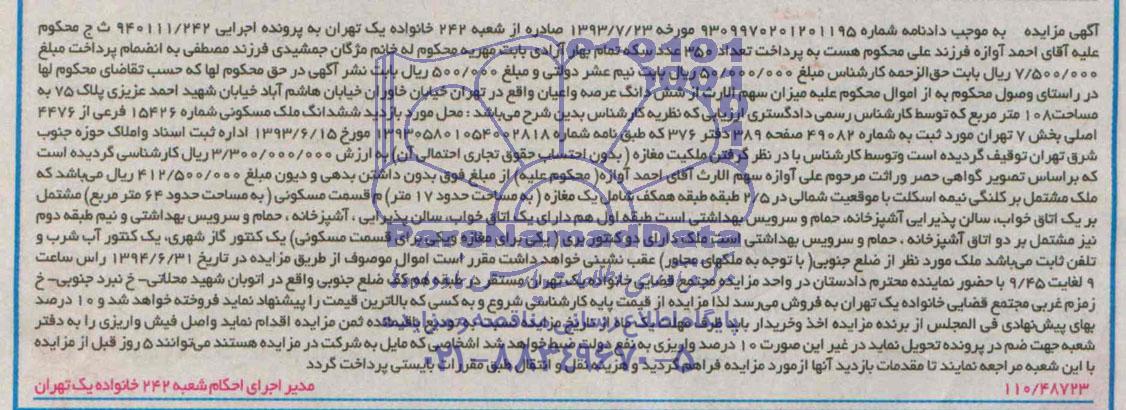 آگهی مزایده به موجب دادنامه شماره ۹۳۰۹۹۷۰۲۰۱۲۰۱۱۹۵ مورخه ۱۳۹۳/۷/۲۳ صادره از شعبه ۲۴۲ خانواده یک تهران به پرونده اجرایی ۹۴۰۱۱۱/۲۴۲ ث ج محکوم
علیه آقای احمد آوازه فرزند علی محکوم هست به پرداخت تعداد ۳۵۰ عدد سکه تمام بهار آزادی بابت مهریه محکوم له خانم مژگان جمشیدی فرزند مصطفی به انضمام پرداخت مبلغ
۷/۵۰۰/۰۰۰ ریال بابت حق‌الزحمه کارشناس مبلغ ۵۰/۰۰۰/۰۰۰ ریال بابت نیم عشر دولتی و مبلغ ۵۰۰/۰۰۰ ریال بابت نشر آگهی در حق محکوم لها که حسب تقاضای محکوم لها
در راستای وصول محکوم به از اموال محکوم علیه میزان سهم الارث از شش دانگ عرصه واعیان واقع در تهران خیابان خاوران خیابان هاشم آباد خیابان شهید احمد عزیزی پلاک ۷۵ به
مساحت ۱۰۸ متر مربع که توسط کارشناس رسمی دادگستری ارزیابی که نظریه کارشناس بدین شرح می‌باشد : محل مورد بازدید ششدانگ ملک مسکونی شماره ۱۵۴۲۶ فرعی از ۴۴۷۶
اصلی بخش ۷ تهران مورد ثبت به شماره ۴۹۰۸۲ صفحه ۳۸۹ دفتر ۳۷۶ که طبق نامه شماره ۱۳۹۳۰۵۸۰۱۰۵۴۰۰۲۸۱۸ مورخ ۱۳۹۳/۶/۱۵ اداره ثبت اسناد واملاک حوزه جنوب
شرق تهران توقیف گردیده است وتوسط کارشناس با در نظر گرفتن ملکیت مغازه ( بدون احتساب حقوق تجاری احتمالی آن) به ارزش ۳/۳۰۰/۰۰۰/۰۰۰ ریال کارشناسی گردیده است
که بر اساس تصویر گواهی حصر وراثت مرحوم علی آوازه سهم الارث آقای احمد آوازه ( محکوم علیه) از مبلغ فوق بدون داشتن بدهی و دیون مبلغ ۴۱۲/۵۰۰/۰۰۰ ریال می‌باشد که
ملک مشتمل بر کلنگی نیمه اسکلت با موقعیت شمالی در ۲/۵ طبقه طبقه همکف شامل یک مغازه ( به مساحت حدود ۱۷ متر) م قسمت مسکونی ( به مساحت حدود ۶۴ متر مربع) مشتمل
بر یک اتاق خواب، سالن پذیرایی آشپزخانه، حمام و سرویس بهداشتی است طبقه اول هم دارای یک اتاق خواب، سالن پذیرایی ، آشپزخانه ، حمام و سرویس بهداشتی و نیم طبقه دوم
نیز مشتمل بر دو اتاق آشپزخانه ، حمام و سرویس بهداشتی است ملک دارای دو کنتور بری ( یکی برای مغازه ویکی برای قسمت مسکونی) یک کنتور گاز شهری، یک کنتور آب شرب و
تلفن ثابت می‌باشد ملک مورد نظر از ضلع جنوبی( با توجه به ملکهای مجاور) عقب نشینی خواهد داشت مقرر است اموال موصوف از طریق مزایده در تاریخ ۱۳۹۴/۶/۳۱ راس ساعت
۹ لغایت ۹/۴۵ با حضور نماینده محترم دادستان در واحد مزایده مجتمع قضایی خانواده یک تهران مستقر در طبقه همکف ضلع جنوبی واقع در اتوبان شهید محلاتی- خ نبرد جنوبی- خ
زمزم غربی مجتمع قضایی خانواده یک تهران به فروش می‌رسد لذا مزایده از قیمت پایه کارشناسی شروع و به کسی که بالاترین قیمت را پیشنهاد نماید فروخته خواهد شد و ۱۰ درصد
بهای پیش‌نهادی فی المجلس از برنده مزایده اخذ وخریدار باید ظرف مهلت یک ماه از تاریخ مزایده نسبت به تودیع باقیمانده ثمن مزایده اقدام نماید واصل فیش واریزی را به دفتر
شعبه جهت ضم در پرونده تحویل نماید در غیر این صورت ۱۰ درصد واریزی به نفع دولت ضبط خواهد شد اشخاصی که مایل به شرکت در مزایده هستند می‌توانند ۵ روز قبل از مزایده
با این شعبه مراجعه نمایند تا مقدمات بازدید آنها ازمورد مزایده فراهم گردید و هزینه نقل و انتقال طبق مقررات بایستی پرداخت گردد
۱۱۰/۴۸۷۲۳ مدیر اجرای احکام شعبه ۲۴۲ خانواده یک تهران
ParsNamadData
پایگاه اطلاع رسانی مناقصه و مزایده
۰۲۱-۸۸۳۴۹۶۷۰-۵